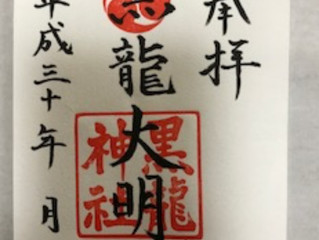 奉拝
黒龍大明
黒龍
神社
平成三十年 月